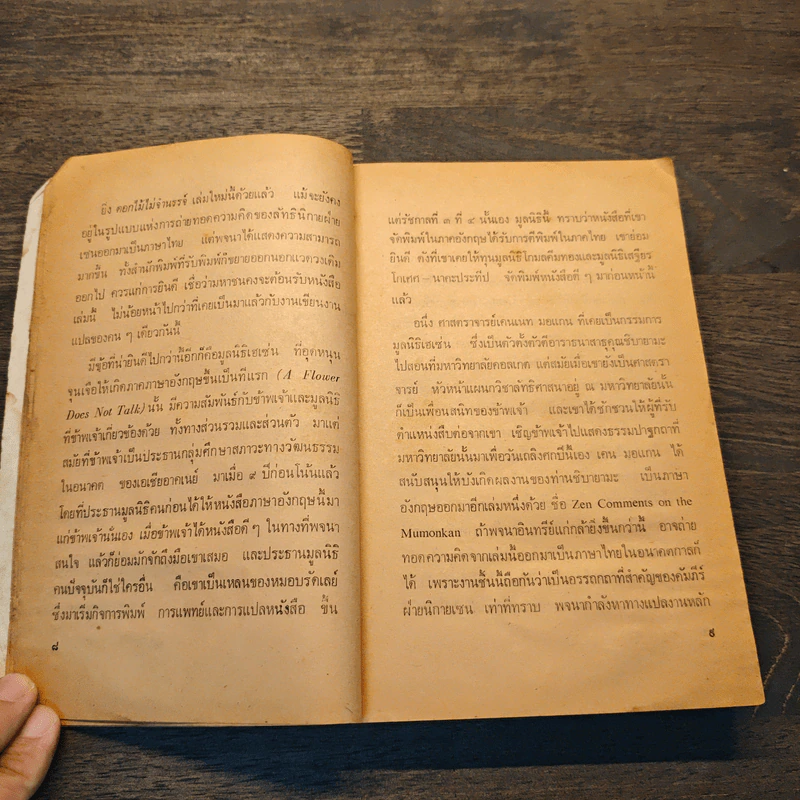 ยิ่ง ดอกไม้ไม่จำนรรจ์ เล่มใหม่นี้ด้วยแล้ว แม้จะยังคง
อยู่ในรูปแบบแห่งการถ่ายทอดความคิดของลัทธินิกายฝ่าย
เซนออกมาเป็นภาษาไทย แต่พจนาได้แสดงความสามารถ
มากขึ้น ทั้งสำนักพิมพ์ที่รับพิมพ์ก็ขยายออกนอกแวดวงเดิม
ออกไป ควรแก่การยินดี เชื่อว่ามหาชนคงจะต้อนรับหนังสือ
เล่มนี้ ไม่น้อยหน้าไปกว่าที่เคยเป็นมาแล้วกับงานเขียนงาน
แปลของคน ๆ เดียวกันนี้
มีข้อที่น่ายินดีไปกว่านี้อีกก็คือมูลนิธิเฮเซ่น ที่อุดหนุน
จุนเจือให้เกิดภาคภาษาอังกฤษขึ้นเป็นทีแรก (A Flower
Does Not Talk) นั้น มีความสัมพันธ์กับข้าพเจ้าและมูลนิธิ
ที่ข้าพเจ้าเกี่ยวข้องด้วย ทั้งทางส่วนรวมและส่วนตัว มาแต่
สมัยที่ข้าพเจ้าเป็นประธานกลุ่มศึกษาสภาวะทางวัฒนธรรม
ในอนาคต ของเอเชียอาคเนย์ มาเมื่อ ๙ ปีก่อนโน้นแล้ว
โดยที่ประธานมูลนิธิคนก่อนได้ให้หนังสือภาษาอังกฤษนี้มา
แก่ข้าพเจ้านั่นเอง เมื่อข้าพเจ้าได้หนังสือดี ๆ ในทางที่พจนา
สนใจ แล้วก็ย่อมมักจักถึงมือเขาเสมอ และประธานมูลนิธิ
คนปัจจุบันก็ใช่ใครอื่น คือเขาเป็นเหลนของหมอบรัดเลย์
ซึ่งมาเริ่มกิจการพิมพ์ การแพทย์และการแปลหนังสือ ขึ้น
๘
แต่รัชกาลที่ ๓ ที่ ๔ นั้นเอง มูลนิธินี้ ทราบว่าหนังสือที่เขา
จัดพิมพ์ในภาคอังกฤษได้รับการตีพิมพ์ในภาคไทย เขาย่อม
ยินดี ดังที่เขาเคยให้ทุนมูลนิธิโกมลคีมทองและมูลนิธิเสฐียร
โกเศศ-นาคะประทีป จัดพิมพ์หนังสือดี ๆ มาก่อนหน้านี้
แล้ว
อนึ่ง ศาสตราจารย์เคนเนท มอแกน ที่เคยเป็นกรรมการ
มูลนิธิเฮเซ่น ซึ่งเป็นตัวตั้งตัวตีอาราธนาสาธุคุณชิบายามะ
ไปสอนที่มหาวิทยาลัยคอลเกต แต่สมัยเมื่อเขายังเป็นศาสตรา
จารย์ หัวหน้าแผนกวิชาลัทธิศาสนาอยู่ ณ มหาวิทยาลัยนั้น
ก็เป็นเพื่อนสนิทของข้าพเจ้า และเขาได้ชักชวนให้ผู้ที่รับ
ตำแหน่งสืบต่อจากเขา เชิญข้าพเจ้าไปแสดงธรรมปาฐกถาที่
มหาวิทยาลัยนั้นมาเพื่อวันเถลิงศกปีนี้เอง เคน มอแกน ได้
สนับสนุนให้บังเกิดผลงานของท่านชิบายามะ เป็นภาษา
อังกฤษออกมาอีกเล่มหนึ่งด้วย ชื่อ Zen Comments on the
Mumonkan ถ้าพจนาอินทรีย์แก่กล้ายิ่งขึ้นกว่านี้ อาจถ่าย
ทอดความคิดจากเล่มนี้ออกมาเป็นภาษาไทยในอนาคตกาลก็
ได้ เพราะงานชิ้นนี้ถือกันว่าเป็นอรรถกถาที่สำคัญของคัมภีร์
ฝ่ายนิกายเซน เท่าที่ทราบ พจนากำลังหาทางแปลงานหลัก
๙